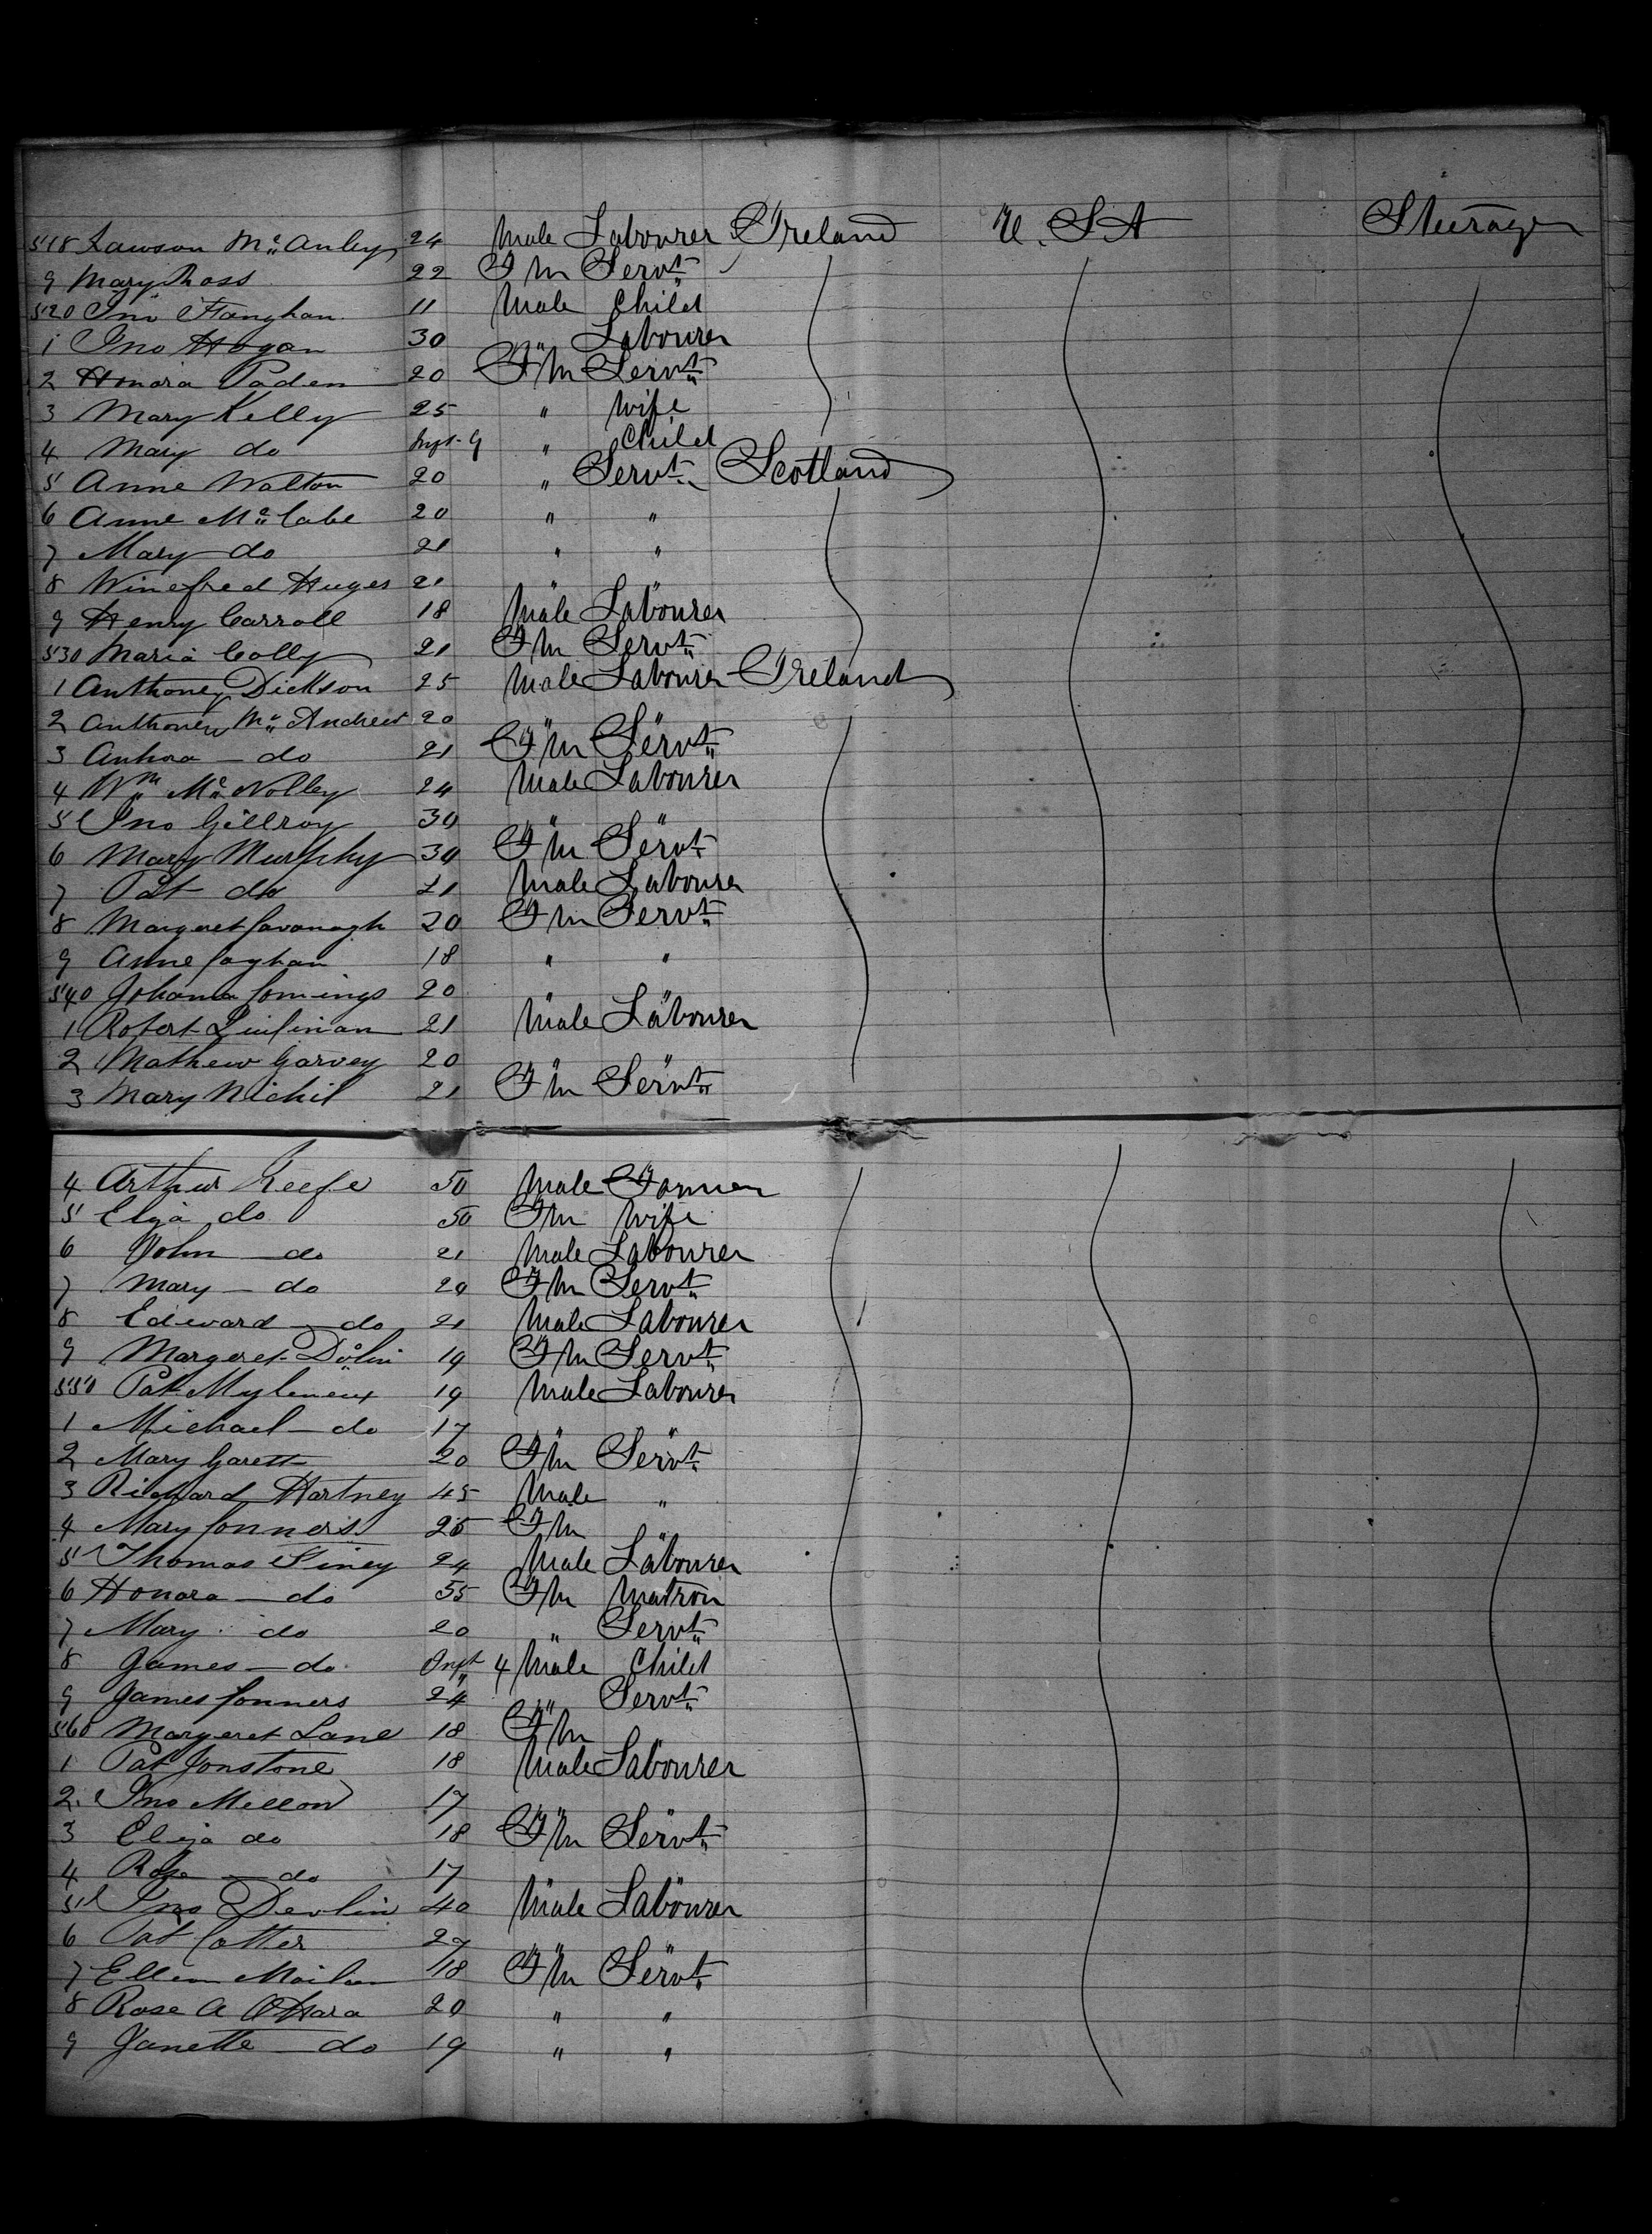 518 Lawson Mc Anley 24 Male Labourer Ireland U. S A Steerage
9 Mary Ross 22 Fm Servt
520 Jno Flanghan 11 Male Child
1 Jno Hogan 30 " Labourer
2 Honora Paden 20 Fm Servt
3 Mary Kelly 25 " Wife
4 Mary do Inft. 9 " Child
5 Anne Walton 20 " Servt Scotland
6 Anne Mc Cabe 20 " "
7 Mary do 21 " "
8 Winefred Huges 21 " "
9 Henry Carroll 18 Male Labourer
530 Maria Colly 21 Fm Servt
1 Anthoney Dickson 25 Male Labourer Ireland
2 Anthoney Mc Andrew 20 " "
3 Anhora do 21 Fm Servt
4 Wm Mc Nolley 24 Male Labourer
5 Jno Gillroy 30 " "
6 Mary Murphy 30 Fm Servt
7 Pat do 21 Male Labourer
8 Margeret Cavanagh 20 Fm Servt
9 Anne Coghan 18 " "
540 Johanna Comings 20 " "
1 Robert 21 Male Labourer
2 Mathew Garvey 20 " "
3 Mary Nichil 21 Fm Servt
4 Arthur Keefe 50 Male Farmer
5 Eliza do 50 Fm Wife
6 John do 21 Male Labourer
7 Mary do 20 Fm Servt
8 Edward do 21 Male Labourer
9 Margeret Dolin 19 Fm Servt
550 Pat 19 Male Labourer
1 Michael do 17 " "
2 Mary Garett 20 Fm Servt
3 Richard Hartney 45 Male "
4 Mary Conners 25 Fm "
5 Thomas Finey 24 Male Labourer
6 Honora do 55 Fm Matron
7 Mary do 20 " Servt
8 James do Inft 4 Male Child
9 James Conners 24 " Servt
560 Margeret Lane 18 Fm "
1 Pat Jonstone 18 Male Labourer
2 Jno Mellon 17 " "
3 Eliza do 18 Fm Servt
4 Rose do 17 " "
5 Jno Devlin 40 Male Labourer
6 Pat Cotter 27 " "
7 Ellen 18 Fm Servt
8 Rose A O'Hara 20 " "
9 Janette do 19 " "